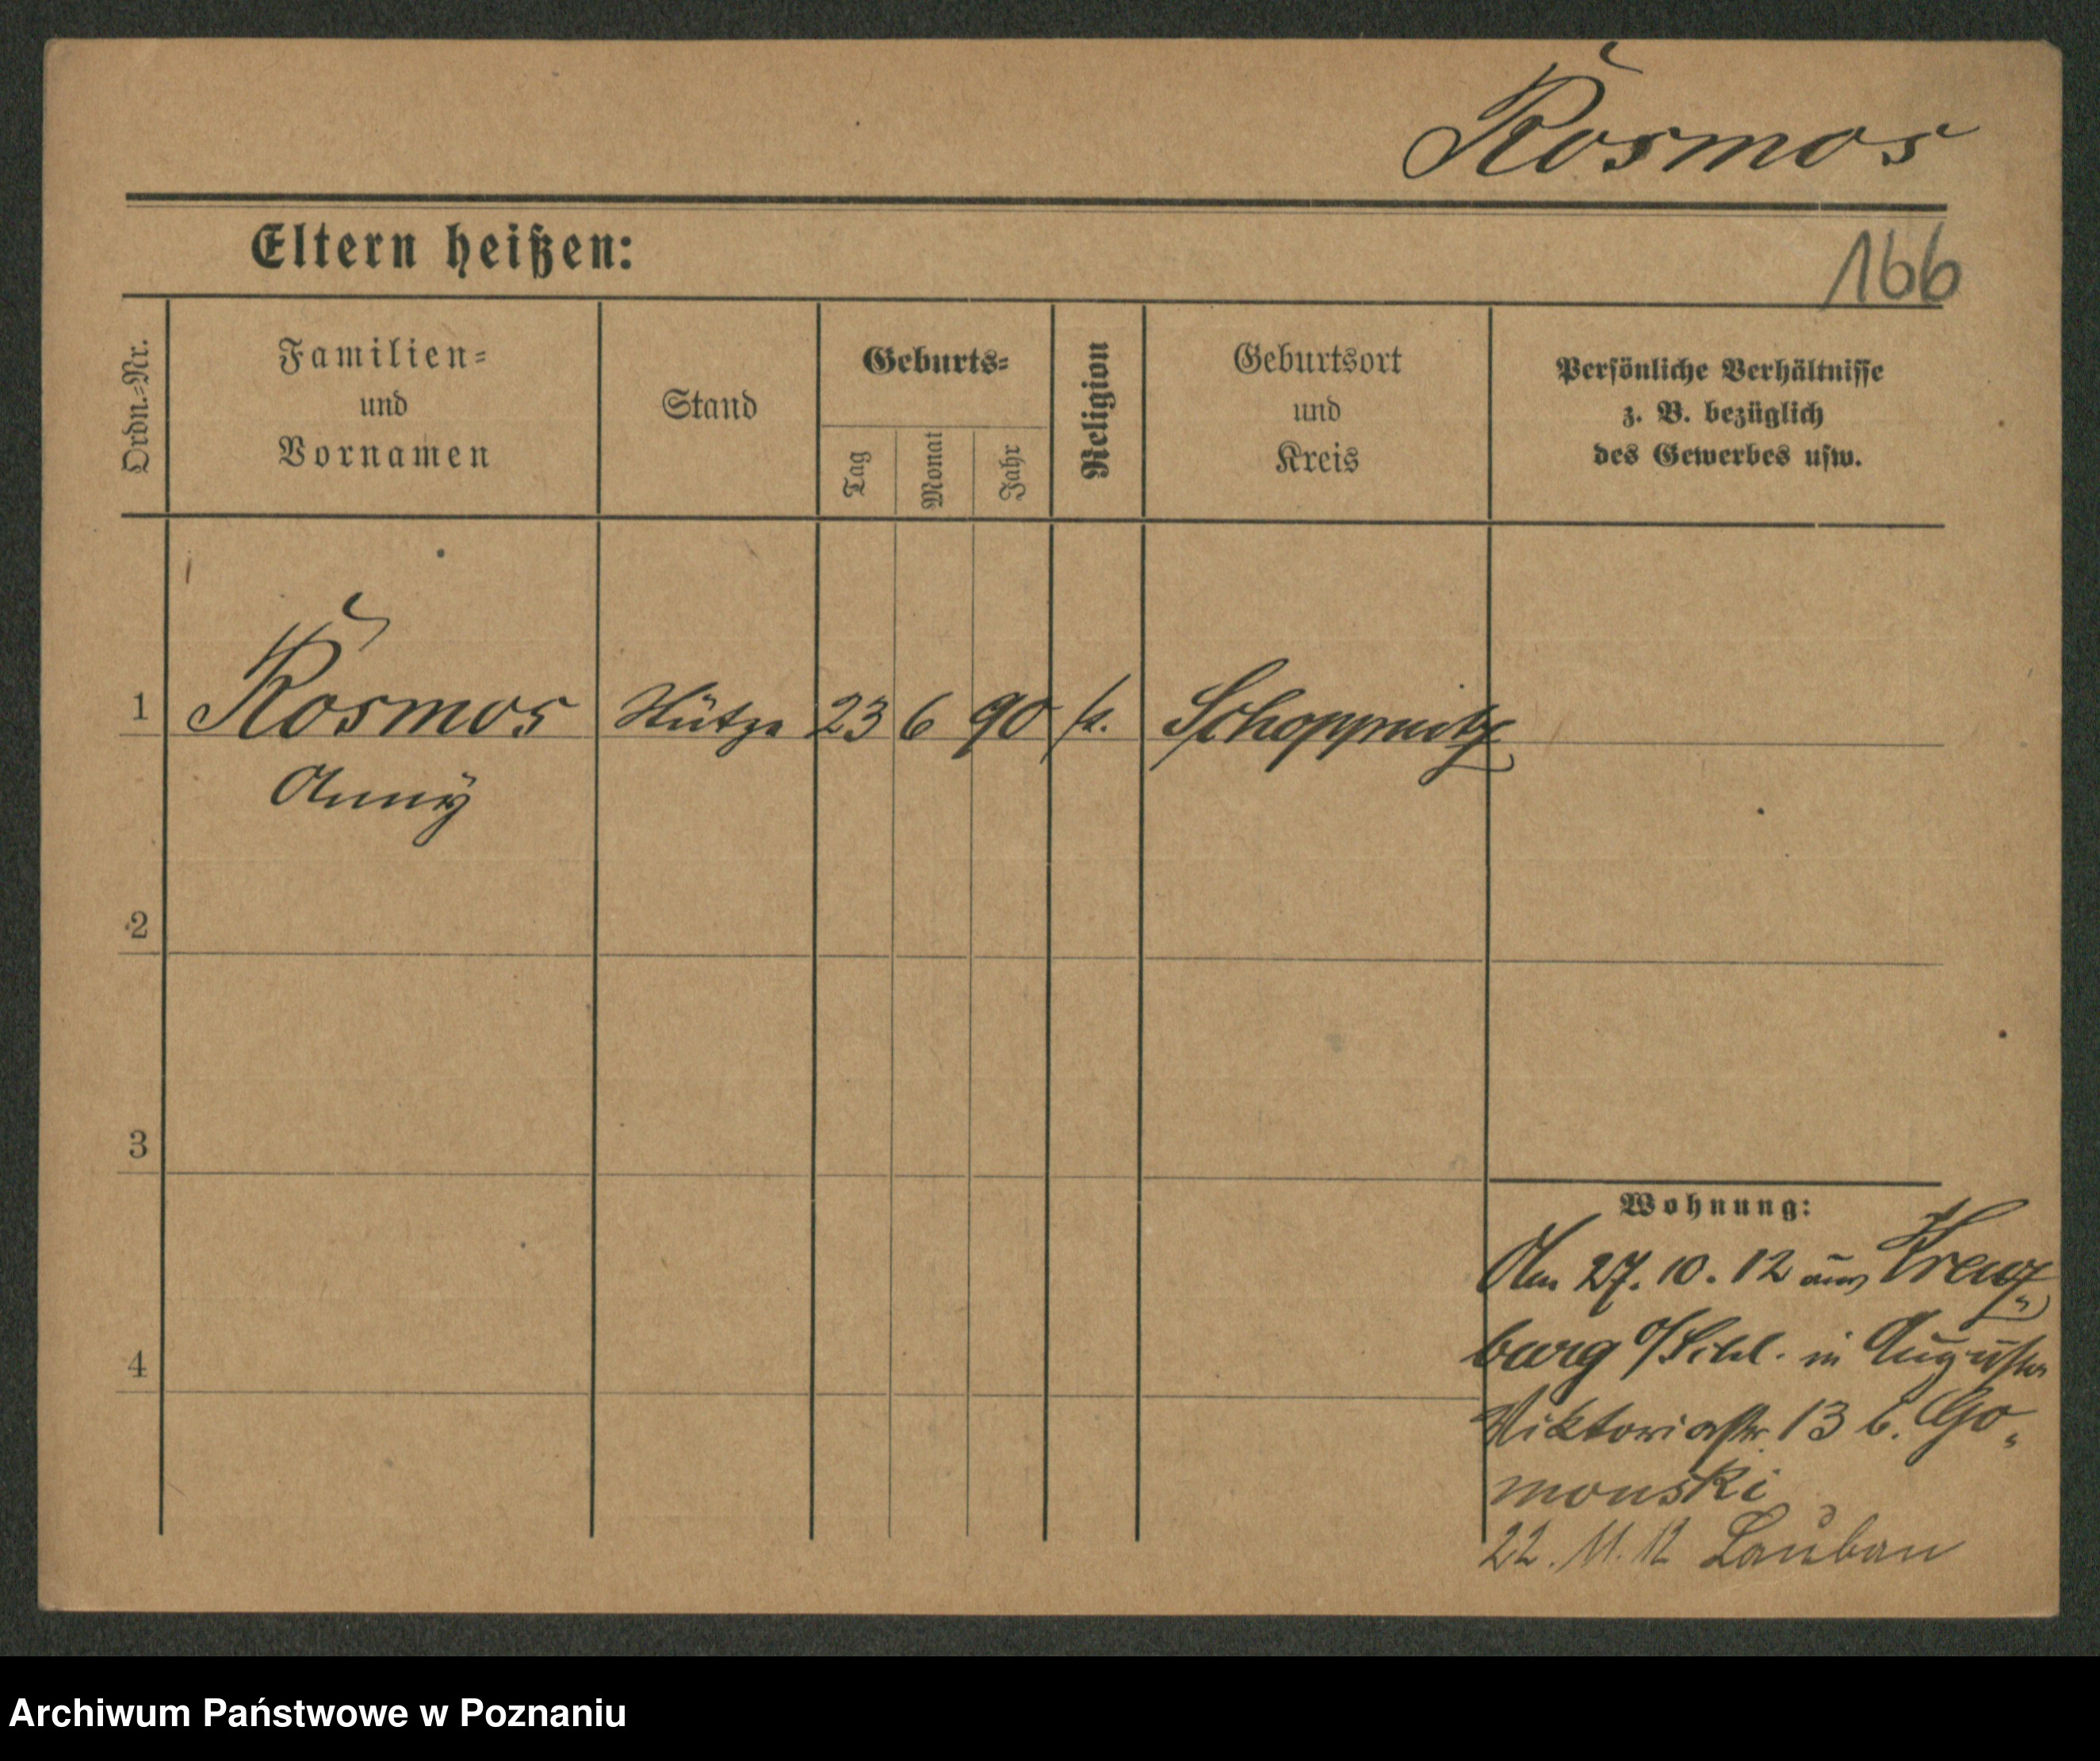 Kosmos
Eltern heißen:
166
Ordn.-Nr.
Familien-
und
Vornamen
Stand
Geburts-
Tag
Monat
Jahr
Religion
Geburtsort
und
Kreis
Persönliche Verhältnisse
z. B. bezüglich
des Gewerbes usw.
1 Kosmos Stütze 23 6 90 k. Schoppinitz
Anny
2
3
4
Wohnung:
Am 27. 10. 12 aus Kreuz-
burg o/Schl. in Augusta
Viktoriastr. 13 b. Go-
monski
22. 11. 12 Lauban
Archiwum Państwowe w Poznaniu